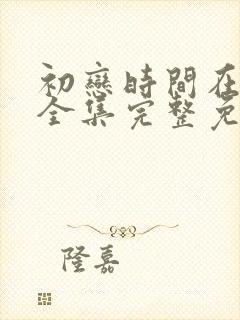 初戀時間在
全集完整免
隆嘉